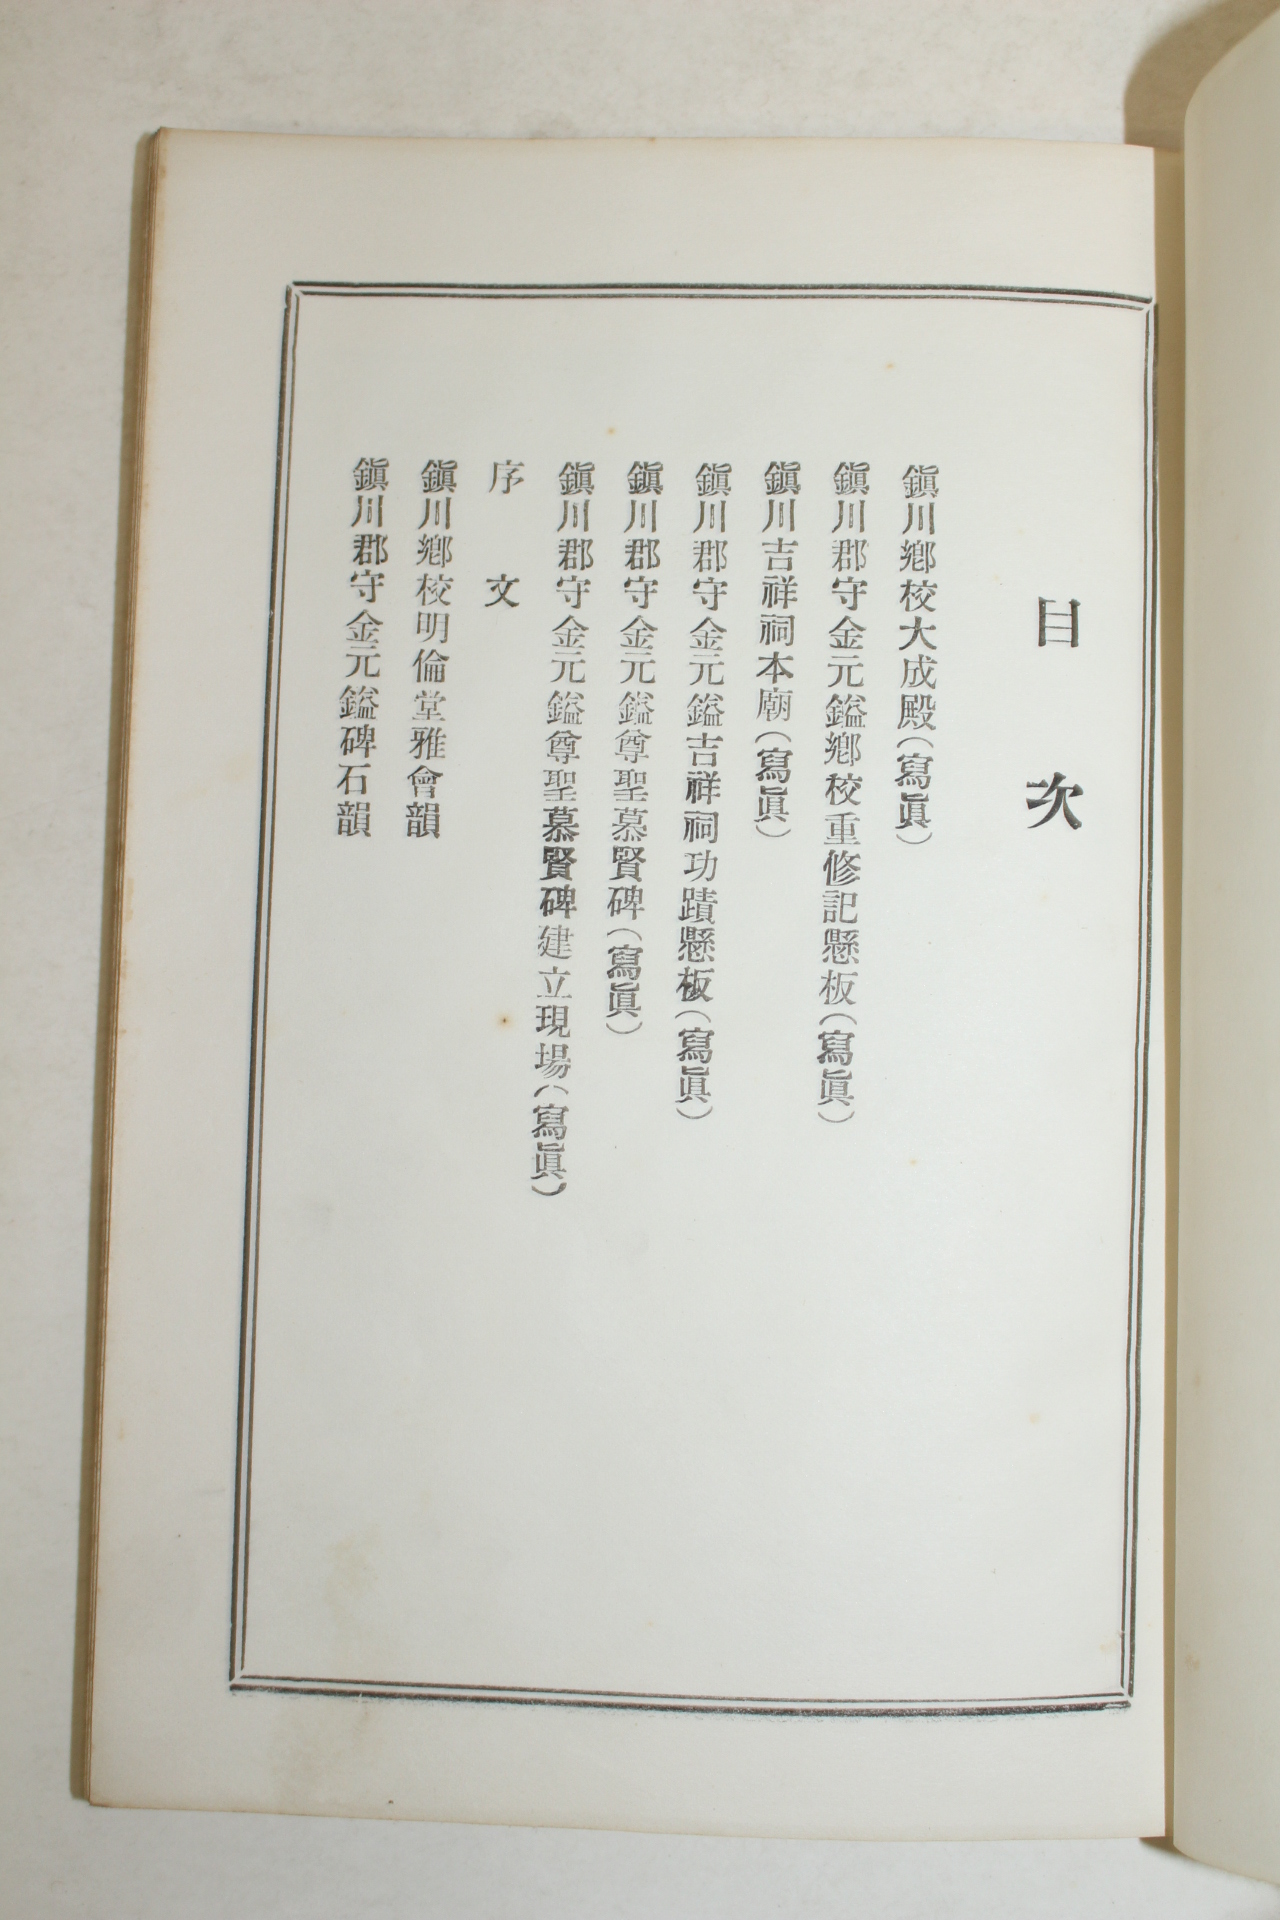 目次
鎭川鄕校大成殿(寫眞)
鎭川郡守金元鎰鄕校重修記懸板(寫眞)
鎭川吉祥祠本廟(寫眞)
鎭川郡守金元鎰吉祥祠功蹟懸板(寫眞)
鎭川郡守金元鎰尊聖慕賢碑(寫眞)
鎭川郡守金元鎰尊聖慕賢碑建立現場(寫眞)
序文
鎭川鄕校明倫堂雅會韻
鎭川郡守金元鎰碑石韻